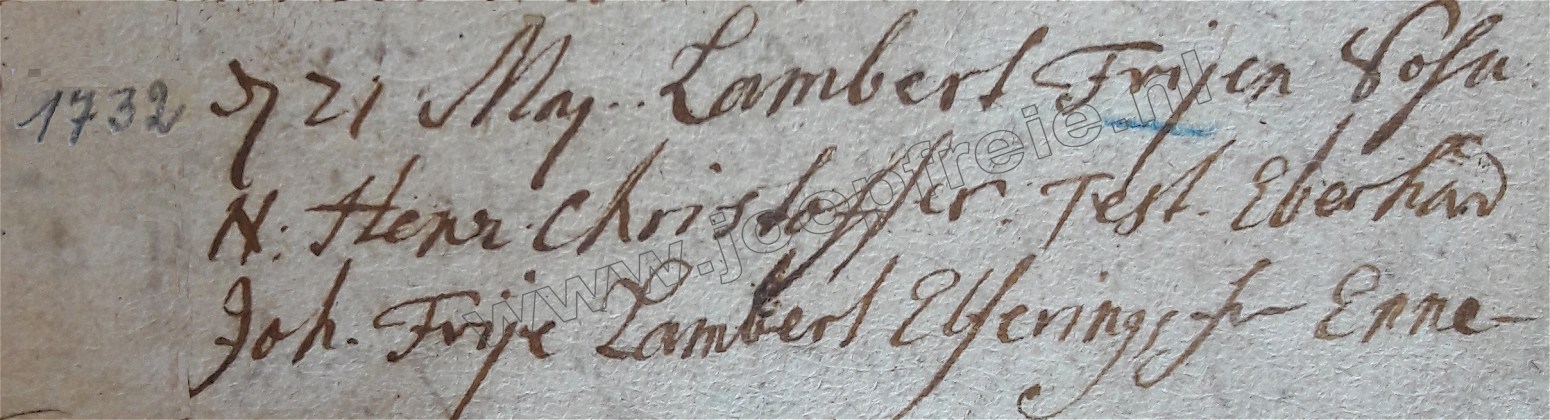 1732 d 21 May. Lambert Frijen Sohn
N. Henr. Christoffer. Test. Eberhard
Joh. Frije Lambert Elferings fr Enne-
www.joopfreie.nl